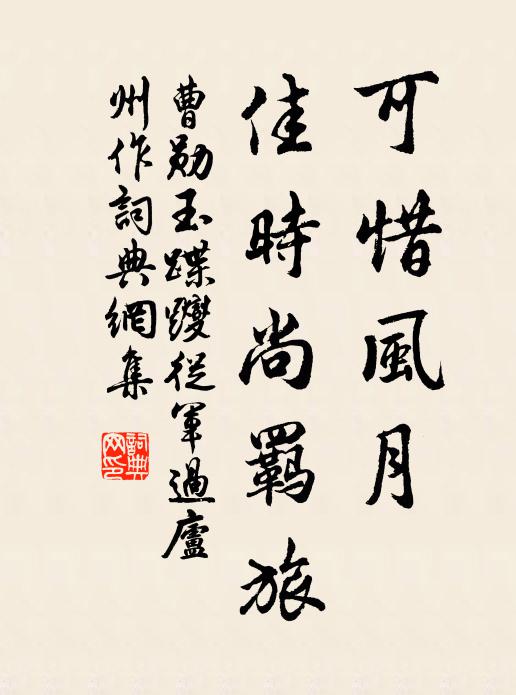 可惜風月
佳時尚羈旅
曹勋玉蹀躞從軍過廬
州作詞典網集
詞典
网印